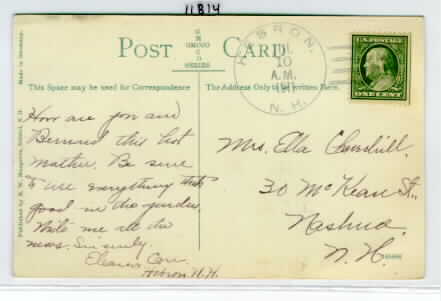 11814
POST CARD
OMINO
SERIES
This Space may be used for Correspondence
The Address Only to be written here.
Made in Germany.
HEBRON,
JUL
10
A.M.
191
N.H.
U.S. POSTAGE
ONE CENT
How are you and
Bernard this hot
weather. Be sure
to use everything thats
good in the garden.
Write me all the
news. Sincerely,
Eleanor
Hebron N.H.
Mrs. Ella Churchill.
30 McKean St.,
Nashua.
N.H.